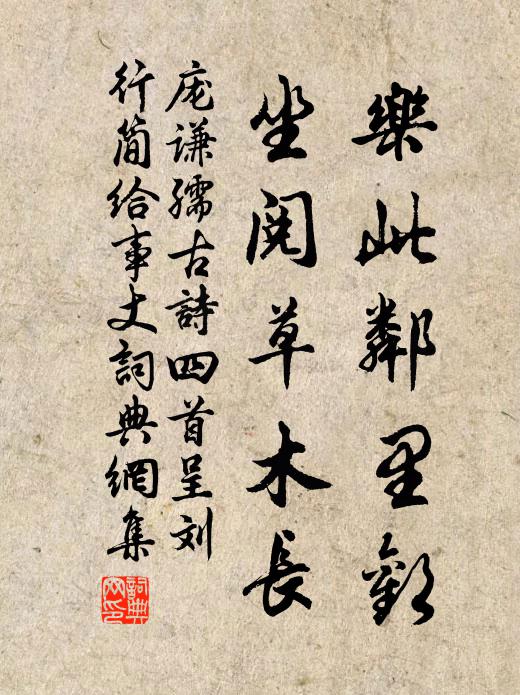 樂此鄰里歡
坐閱草木長
庞谦孺古詩四首呈刘
行簡給事丈詞典網集
詞典網印